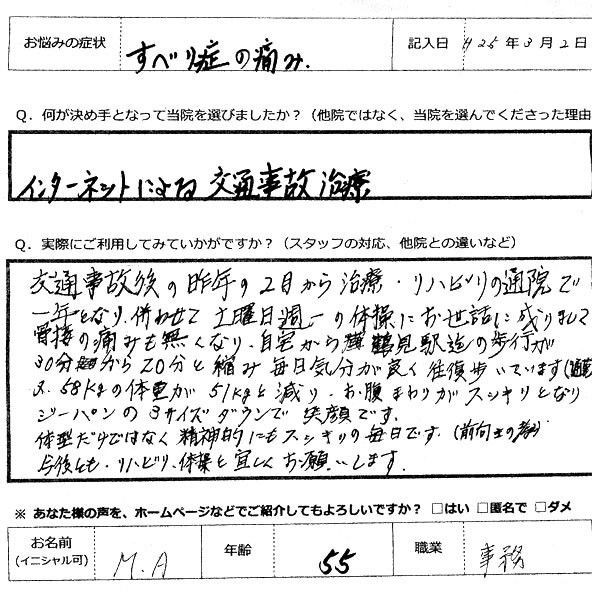 お悩みの症状 すべり症の痛み. 記入日 H25年3月2日
Q. 何が決め手となって当院を選びましたか？（他院ではなく、当院を選んでくださった理由
インターネットによる 交通事故治療
Q. 実際にご利用してみていかがですか？（スタッフの対応、他院との違いなど）
交通事故後の昨年の2月から治療・リハビリの通院で
一年となり、併わせて土曜日週一の体操にお世話に成りまして
の痛みも無くなり、自宅から 鶴見駅迄の歩行が
30分 から20分と縮み毎日気分が良く往復歩いています
58kgの体重が51kgと減り、お腹まわりがスッキリとなり
ジーパンの3サイズダウンで笑顔です。
体型だけではなく精神的にもスッキリの毎日です。
今後とも・リハビリ、体操と宜しくお願いします。
※ あなた様の声を、ホームページなどでご紹介してもよろしいですか？ □はい □匿名で □ダメ
お名前 (イニシャル可) M.A 年齢 55 職業 事務